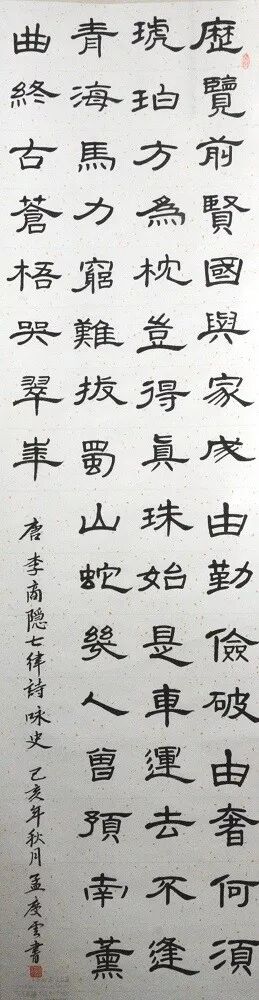 歷覽前賢國與家成由勤儉破由奢何須
琥珀方爲枕豈得眞珠始是車運去不逢
青海馬力窮難拔蜀山蛇幾人曾預南薰
曲終古蒼梧哭翠華
唐李商隐七律詩咏史 己亥年秋月孟慶雲書